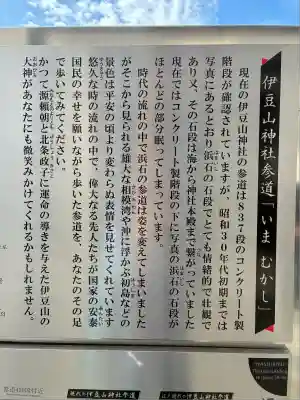 伊豆山神社参道「いま むかし」
現在の伊豆山神社の参道は837段のコンクリート製
階段が確認されていますが、昭和30年代初期までは
写真にあるとおり浜石の石段でとても情緒的で壮観で
あり又、その石段は海から神社本殿まで繋がっていました
現在ではコンクリート製階段の下に写真の浜石の石段が
ほとんどの部分眠ってしまっています。
時代の流れの中で浜石の参道は姿を変えてしまいました
がそこから見られる雄大な相模湾や沖に浮かぶ初島などの
景色は平安の頃より変わらぬ表情を見せてくれています
悠久な時の流れの中で、偉大なる先人たちが国家の安泰
国民の幸せを願いながら歩いた参道を、あなたのその足
で歩いてみてください。
かつて源頼朝と北条政子に運命の導きを与えた伊豆山の
大神があなたにも微笑みかけてくれるかもしれません。